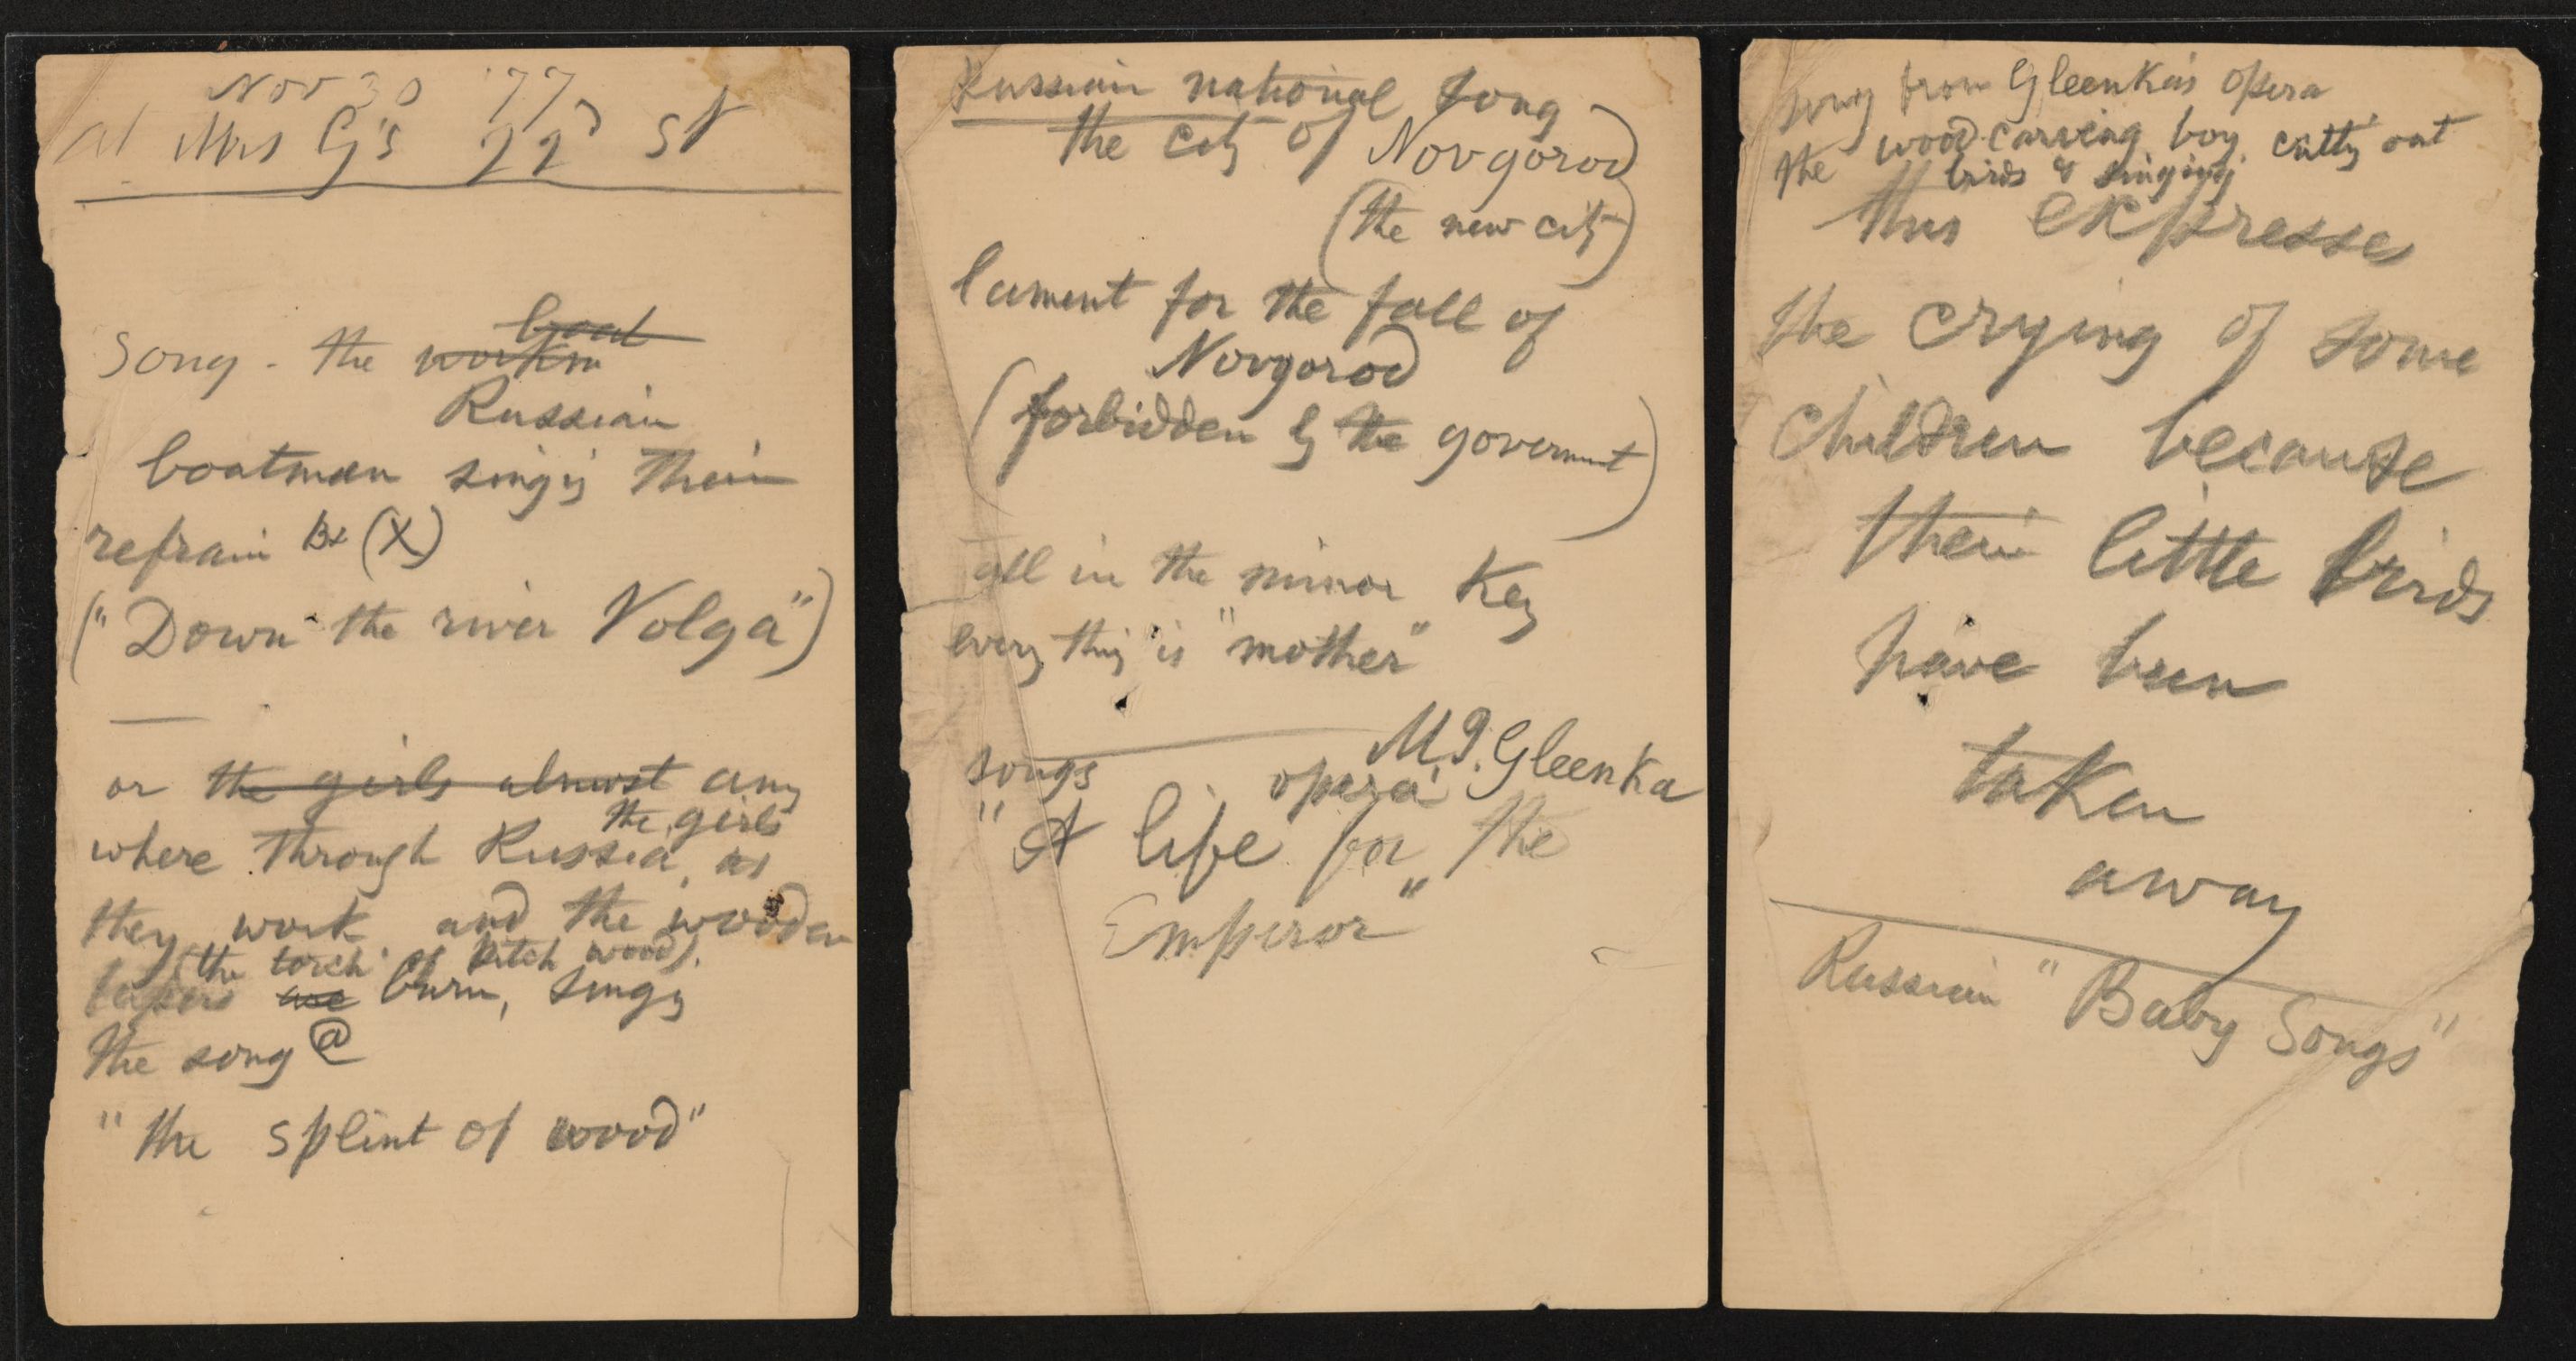 Nov 30 '77
at Mrs G's 22d St
boat
Song - the workm
Russian
boatmen singig their
refrain Bx (X)
("Down the river Volga")
or the girls almost any
where through Russia, as
the girls
they work and the wooden
(the torch of pitch wood).
tapers are burn, singg
the song @
"the splint of wood"
Russian national song
the city of Novgorod
(the new city)
lament for the fall of
Novgorod
(forbidden by the governmt)
all in the minor Key
every thing is "mother"
songs opera M.I. Gleenka
"A life for the
Emperor"
song from Gleenka's opera
the wood-carving boy cuttg out
birds & singing
thus expresse
the crying of some
children because
their little birds
have been
taken
away
Russian "Baby Songs"